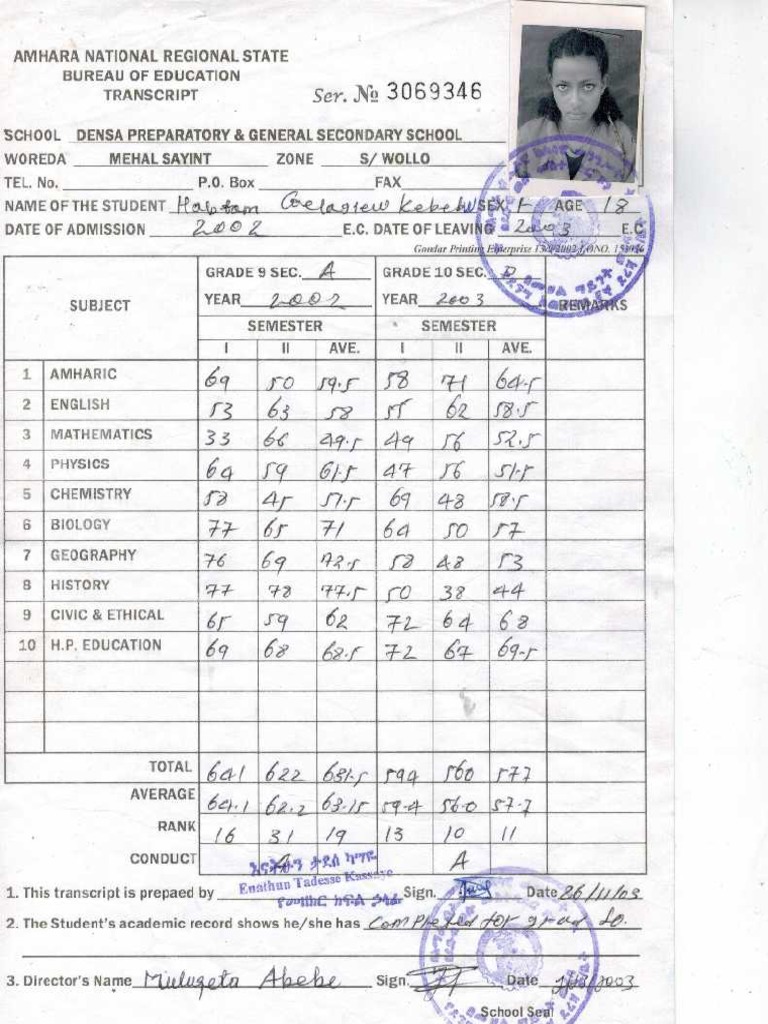 AMHARA NATIONAL REGIONAL STATE
BUREAU OF EDUCATION
TRANSCRIPT
Ser. № 3069346
SCHOOL DENSA PREPARATORY & GENERAL SECONDARY SCHOOL
WOREDA MEHAL SAYINT ZONE S/ WOLLO
TEL. No. P.O. Box FAX
NAME OF THE STUDENT Habtam Getagrew Kebede SEX F AGE 18
DATE OF ADMISSION 2002 E.C. DATE OF LEAVING 2003 E.C
Gondar Printing Enterprise
SUBJECT GRADE 9 SEC. A GRADE 10 SEC. REMARKS
YEAR 2002 YEAR 2003
SEMESTER SEMESTER
I II AVE. I II AVE.
1 AMHARIC 69 50 59.5 58 71 64.5
2 ENGLISH 53 63 58 55 62 58.5
3 MATHEMATICS 33 66 49.5 49 56 52.5
4 PHYSICS 64 59 61.5 47 56 51.5
5 CHEMISTRY 58 45 51.5 69 48 58.5
6 BIOLOGY 77 65 71 64 50 57
7 GEOGRAPHY 76 69 72.5 58 48 53
8 HISTORY 77 78 77.5 50 38 44
9 CIVIC & ETHICAL 65 59 62 72 64 68
10 H.P. EDUCATION 69 68 68.5 72 67 69.5
TOTAL 641 622 631.5 594 560 577
AVERAGE 64.1 62.2 63.15 59.4 56.0 57.7
RANK 16 31 19 13 10 11
CONDUCT A A
እናትሁን ታደሰ ካሣዬ
1. This transcript is prepaed by Enathun Tadesse Kassaye Sign. Date 26/11/03
የመዝገብ ክፍል ኃላፊ
2. The Student's academic record shows he/she has Completed for grad 10.
3. Director's Name Muluzeta Abebe Sign. Date /2003
School Seal